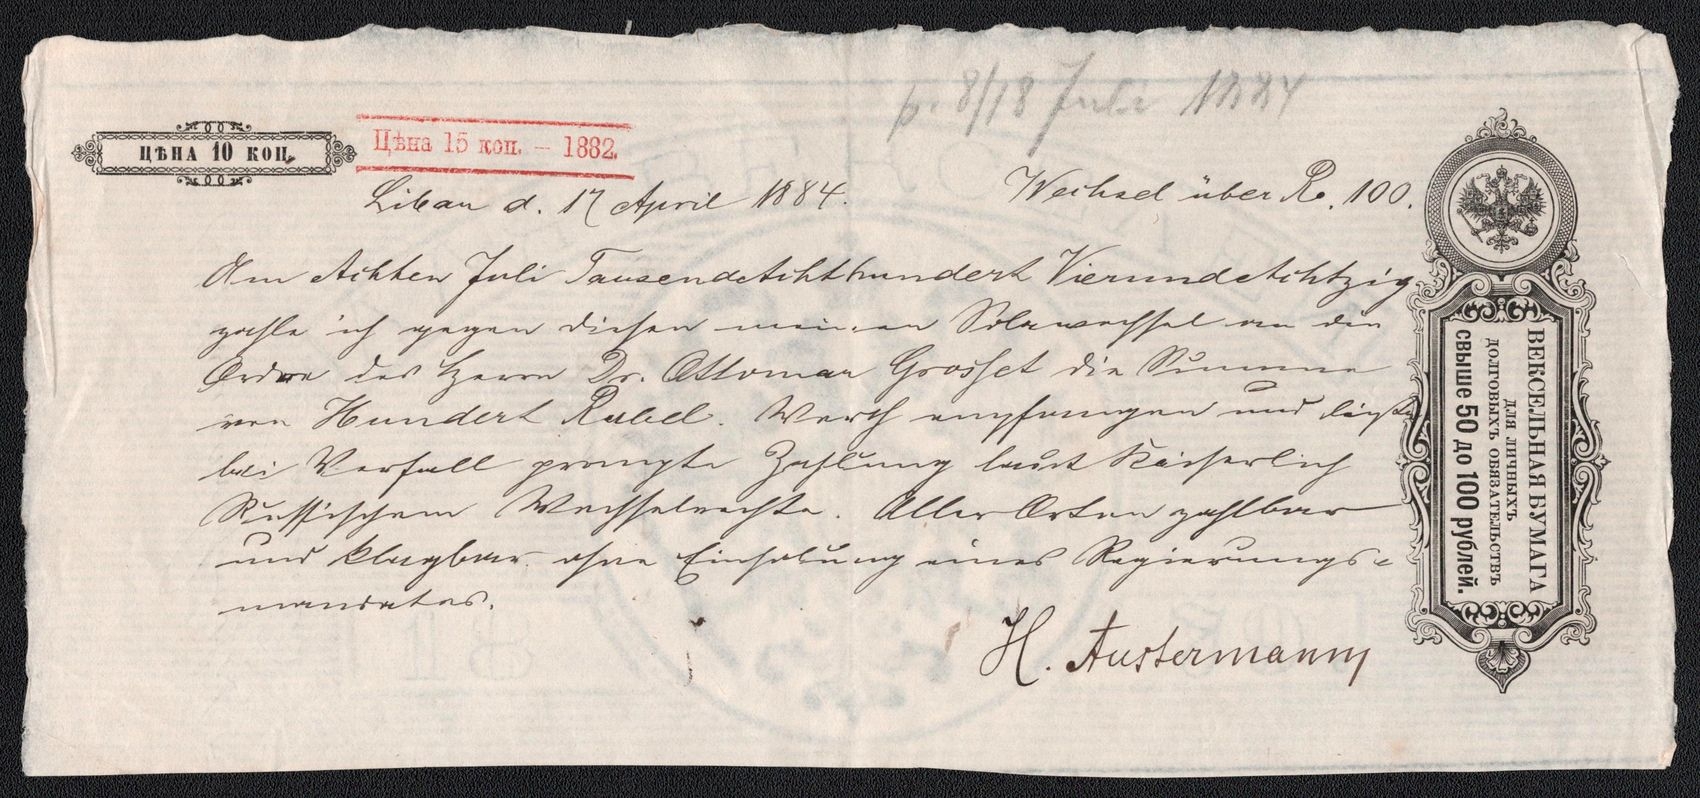 p. 8/18 Juli 1884
ЦѢНА 10 КОП.
Цѣна 15 коп. – 1882.
Libau d. 17 April 1884.
Wechsel über Ro. 100.
Am Achten Juli Tausendachthundert Vierundachtzig
zahle ich gegen diesen meinen Solawechsel an die
Ordre des Herrn Dr. Ottomar Grosset die Summe
von Hundert Rubel. Werth empfangen und leiste
bei Verfall prompte Zahlung laut Kaiserlich
Russischem Wechselrechte. Aller Orten zahlbar
und klagbar ohne Einholung eines Regierungs-
mandates.
H. Austermann
ВЕКСЕЛЬНАЯ БУМАГА
ДЛЯ ЛИЧНЫХЪ
ДОЛГОВЫХЪ ОБЯЗАТЕЛЬСТВЪ
свыше 50 до 100 рублей.